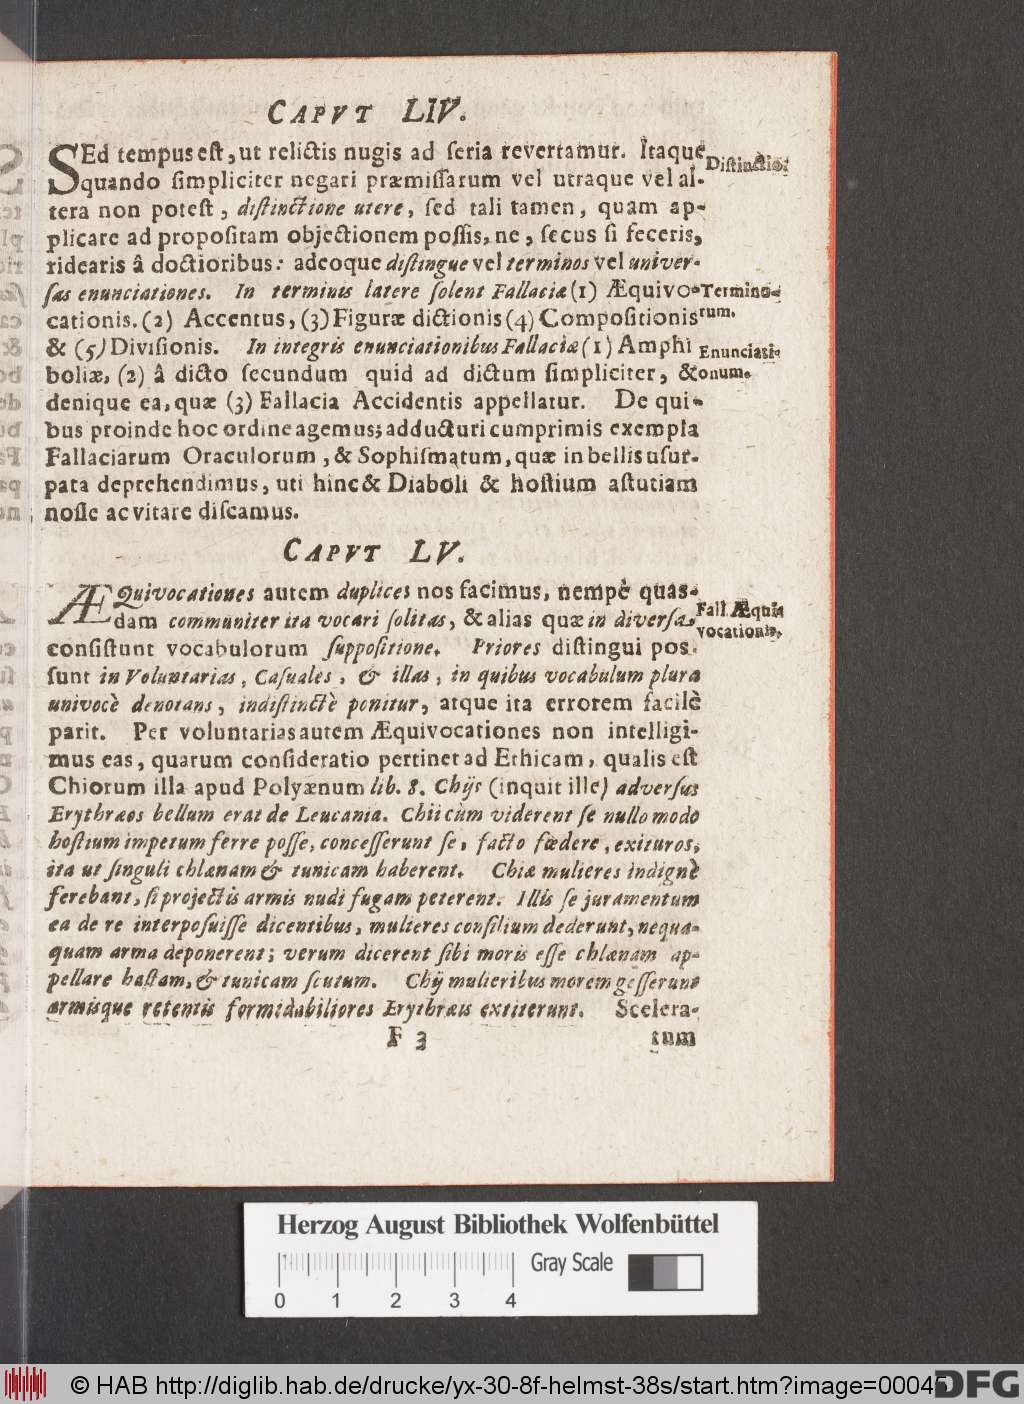 CAPVT LIV.
SEd tempus est, ut relictis nugis ad seria revertamur. Itaque
quando simpliciter negari præmissarum vel utraque vel al-
tera non potest, distinctione utere, sed tali tamen, quam ap-
plicare ad propositam objectionem possis, ne, secus si feceris,
ridearis â doctioribus: adeoque distingue vel terminos vel univer-
sas enunciationes. In terminis latere solent Fallaciæ (1) Æquivo-
cationis. (2) Accentus, (3) Figuræ dictionis (4) Compositionis
& (5) Divisionis. In integris enunciationibus Fallaciæ (1) Amphi
boliæ, (2) â dicto secundum quid ad dictum simpliciter, &
denique ea, quæ (3) Fallacia Accidentis appellatur. De qui-
bus proinde hoc ordine agemus; adducturi cumprimis exempla
Fallaciarum Oraculorum, & Sophismatum, quæ in bellis usur-
pata deprehendimus, uti hinc & Diaboli & hostium astutiam
nosse ac vitare discamus.
Distinctio.
Termino-
rum.
Enunciati-
onum.
CAPVT LV.
ÆQuivocationes autem duplices nos facimus, nempè quas-
dam communiter ita vocari solitas, & alias quæ in diversa
consistunt vocabulorum suppositione. Priores distingui pos
sunt in Voluntarias, Casuales, & illas, in quibus vocabulum plura
univocè denotans, indistinctè ponitur, atque ita errorem facilè
parit. Per voluntarias autem Æquivocationes non intelligi-
mus eas, quarum consideratio pertinet ad Ethicam, qualis est
Chiorum illa apud Polyænum lib. 8. Chijs (inquit ille) adversus
Erythræos bellum erat de Leucania. Chii cùm viderent se nullo modo
hostium impetum ferre posse, concesserunt se, facto fœdere, exituros,
ita ut singuli chlænam & tunicam haberent. Chiæ mulieres indignè
ferebant, si projectis armis nudi fugam peterent. Illis se juramentum
ea de re interposuisse dicentibus, mulieres consilium dederunt, nequa-
quam arma deponerent; verum dicerent sibi moris esse chlænam ap-
pellare hastam, & tunicam scutum. Chij mulieribus morem gesserunt
armisque retentis formidabiliores Erythræis extiterunt. Scelera-
Fall Æqui
vocationis.
F 3
tum
Herzog August Bibliothek Wolfenbüttel
Gray Scale
0 1 2 3 4
© HAB http://diglib.hab.de/drucke/yx-30-8f-helmst-38s/start.htm?image=00045
DFG